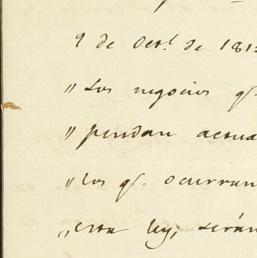 9 de Oct.e de 181
" Los negocios q.e
" pendan actua
" los q.e ocurran
" esta ley; serán